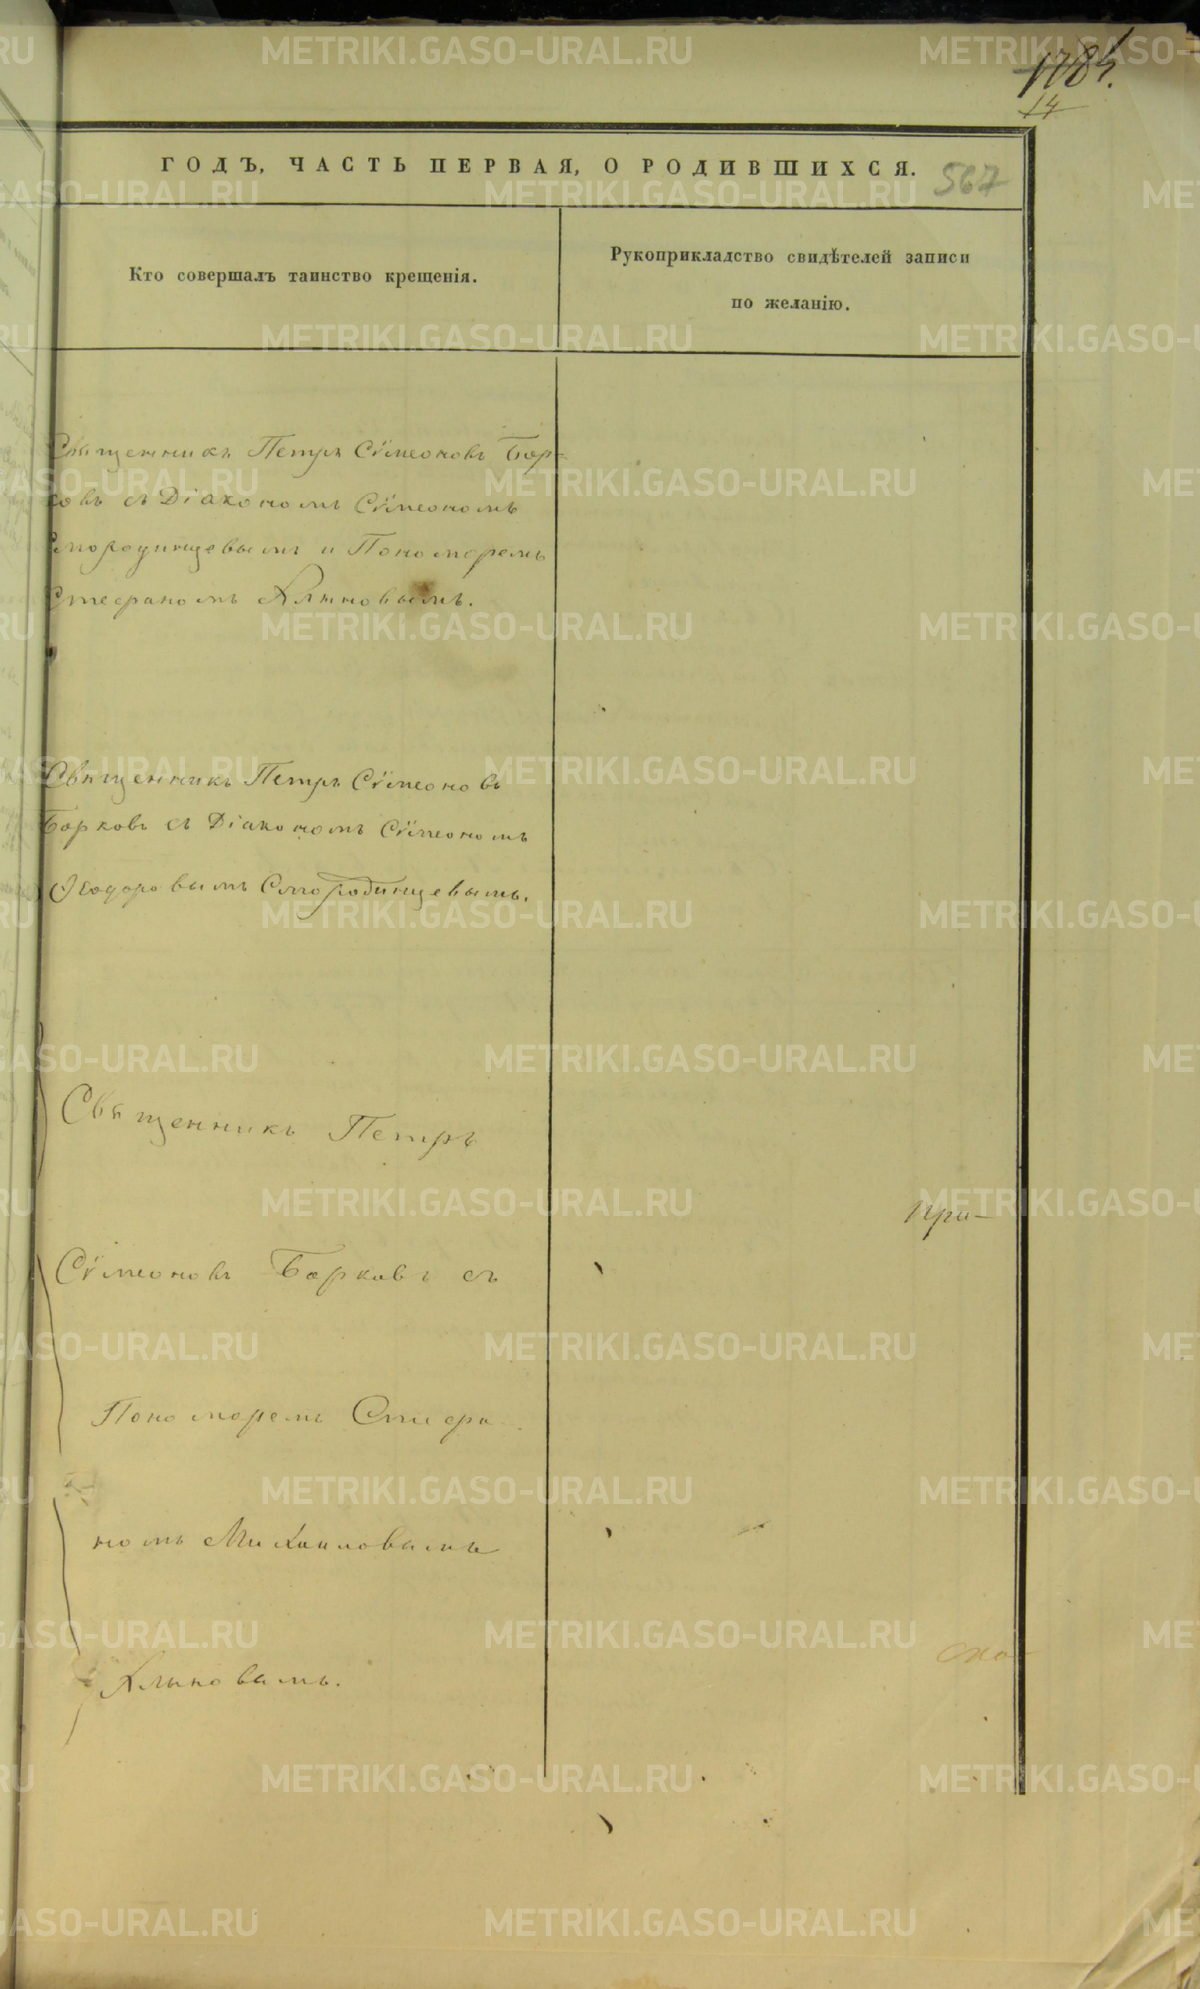 1184.
14
ГОДЪ, ЧАСТЬ ПЕРВАЯ, О РОДИВШИХСЯ. 567
Кто совершалъ таинство крещенія.
Рукоприкладство свидѣтелей записи
по желанію.
Священникъ Петръ Сѵмеоновъ Бор-
ковъ съ Діакономъ Сѵмеономъ
Смородинцевымъ и Пономаремъ
Стефаномъ
Священникъ Петръ Сѵмеоновъ
Борковъ съ Діакономъ Сѵмеономъ
Ѳеодоровымъ Смородинцевымъ.
Священникъ Петръ
При-
Сѵмеоновъ Борковъ съ
Пономаремъ Стефа-
номъ Михаиловымъ
METRIKI.GASO-URAL.RU